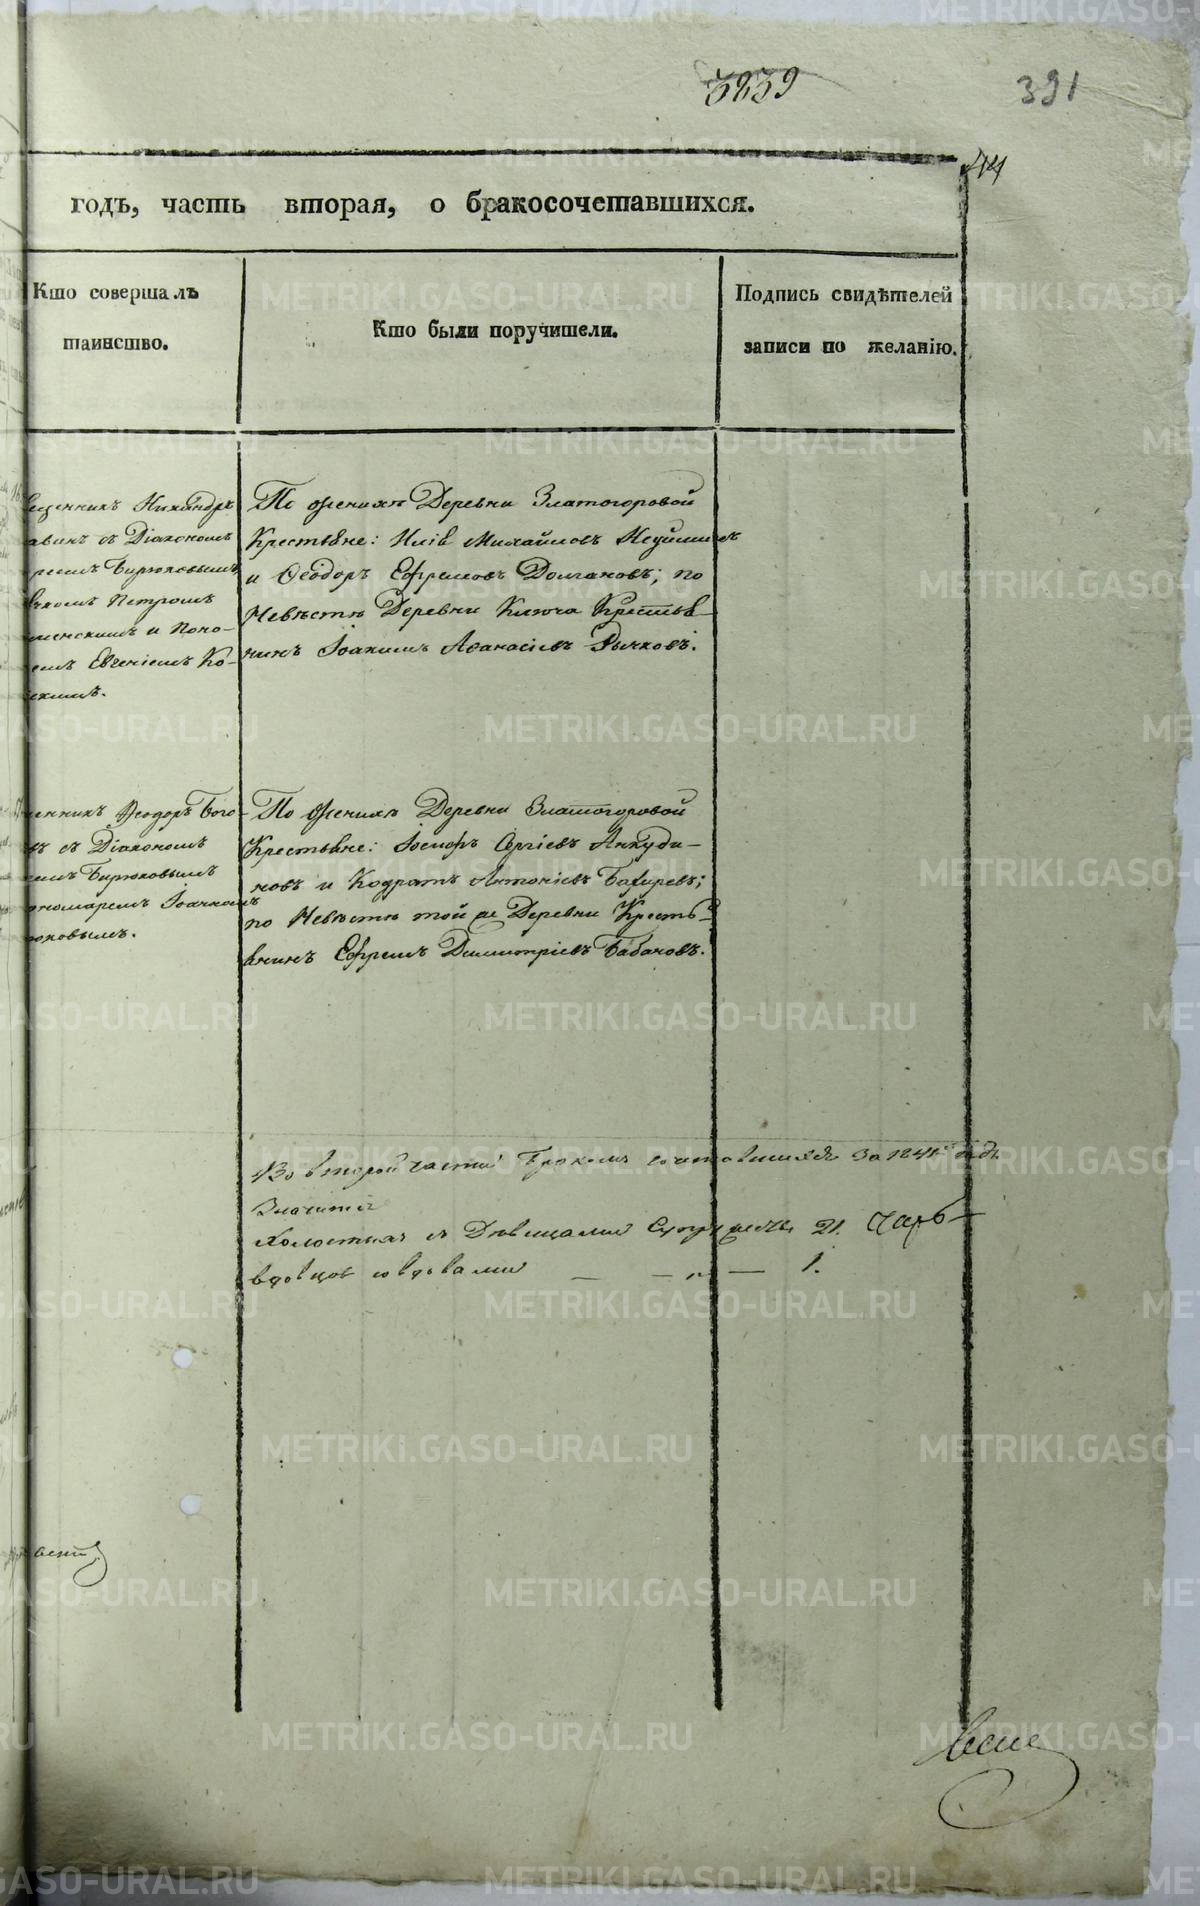 3839
391
44
годъ, часть вторая, о бракосочетавшихся.
Кто совершалъ
таинство.
Кто были поручители.
Подпись свидѣтелей
записи по желанію.
щенникъ Никандръ
съ Діакономъ
Бирюковымъ,
Петромъ
менскимъ и Поно-
Евгеніемъ Ко-
скимъ.
По женихѣ Деревни Златогоровой
Крестьяне: Илія Михайловъ
и Ѳеодоръ Ефремовъ Долгановъ; по
Невѣстѣ Деревни Ключа Крестья-
нинъ Іоакимъ Аѳанасіевъ Рычковъ.
енникъ Ѳеодоръ Бого-
въ съ Діакономъ
Бирюковымъ
ономаремъ Іоанномъ
юковымъ.
По женихѣ Деревни Златогоровой
Крестьяне: Іосифъ Сергіевъ Анкуди-
новъ и Кодратъ Антоніевъ
по Невѣстѣ той же Деревни Кресть-
янинъ Ефремъ Димитріевъ Бабановъ.
Во второй части бракомъ сочетавшихся за годъ
Значится
Холостыхъ съ Дѣвицами 21. Чаръ
вдовцов со вдовами — — „ — 1.
METRIKI.GASO-URAL.RU